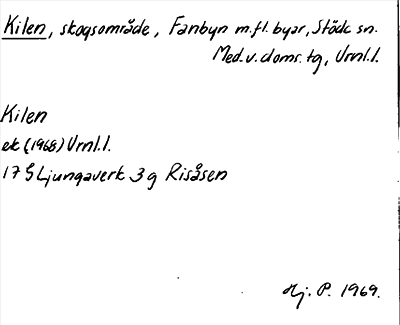 Kilen, skogsområde, Fanbyn m.fl. byar, Stöde sn.
Med. v. doms. tg, Vrnl.l.
Kilen
ek (1968) Vrnl.l.
17 G Ljungaverk 3 g Risåsen
Hj. P. 1969.